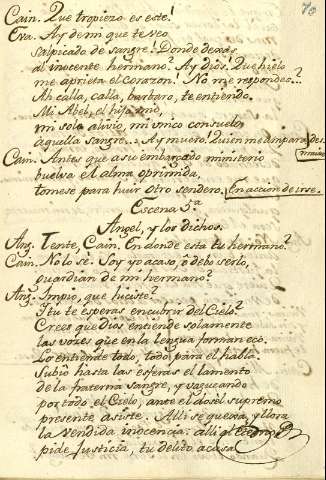 70
Cain. Que tropiezo es este!
Eva. Ay de mi que te veo
salpicado de sangre! Donde dexas
al inocente hermano? Ay dios! Que hielo
me aprieta el corazon! No me respondes...?
Ah calla, calla, barbaro, te entiendo.
Mi Abel, el hijo mio,
mi solo alivio, mi unico consuelo,
aquella sangre... Ay muero! Quien me ampara
Cain. Antes que a su embarazado ministerio
buelva el Alma oprimida,
tomese para huir otro sendero. En accion de irse.
Escena 5ª
Angel, y los dichos.
Ang. Tente, Cain. En donde esta tu hermano?
Cain. No lo se. Soy yo acaso, ó debo serlo,
guardian de mi hermano?
Ang. Impio, que hiciste?
I tu te esperas encubrir del Cielo?
Crees que dios entiende solamente
las vozes que en la lengua forman eco.
Lo entiende todo, todo para el habla.
Subio hasta las esferas el lamento
de la fraterna sangre, y vagueando
por todo el Cielo, ante el dosel supremo
presente asiste. Alli se quexa, y llora
la vendida inocencia: alli al
pide Justicia, tu delito acusa